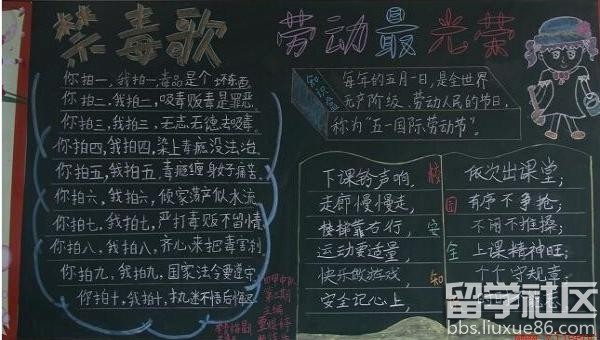 禁毒歌
你拍一,我拍一,毒品是个坏东西
你拍二,我拍二,吸毒贩毒是罪恶
你拍三,我拍三,无志无德去吸毒
你拍四,我拍四,染上毒瘾没法治
你拍五,我拍五,毒瘾缠身好痛苦
你拍六,我拍六,倾家荡产似水流
你拍七,我拍七,严打毒贩不留情
你拍八,我拍八,齐心来把毒害创
你拍九,我拍九,国家法令要遵守
你拍十,我拍十,执迷不悟后悔迟
劳动最光荣
每年的五月一日,是全世界
无产阶级、劳动人民的节日,
称为“五一国际劳动节”。
校园安全知
下课铃声响,依次出课堂;
走廊慢慢走,有序不争抢;
楼梯靠右行,不闹不推搡;
运动要适量,上课精神旺;
快乐做游戏,个个守规章;
安全记心上,
主编
留学社区
bbs.liuxue86.com